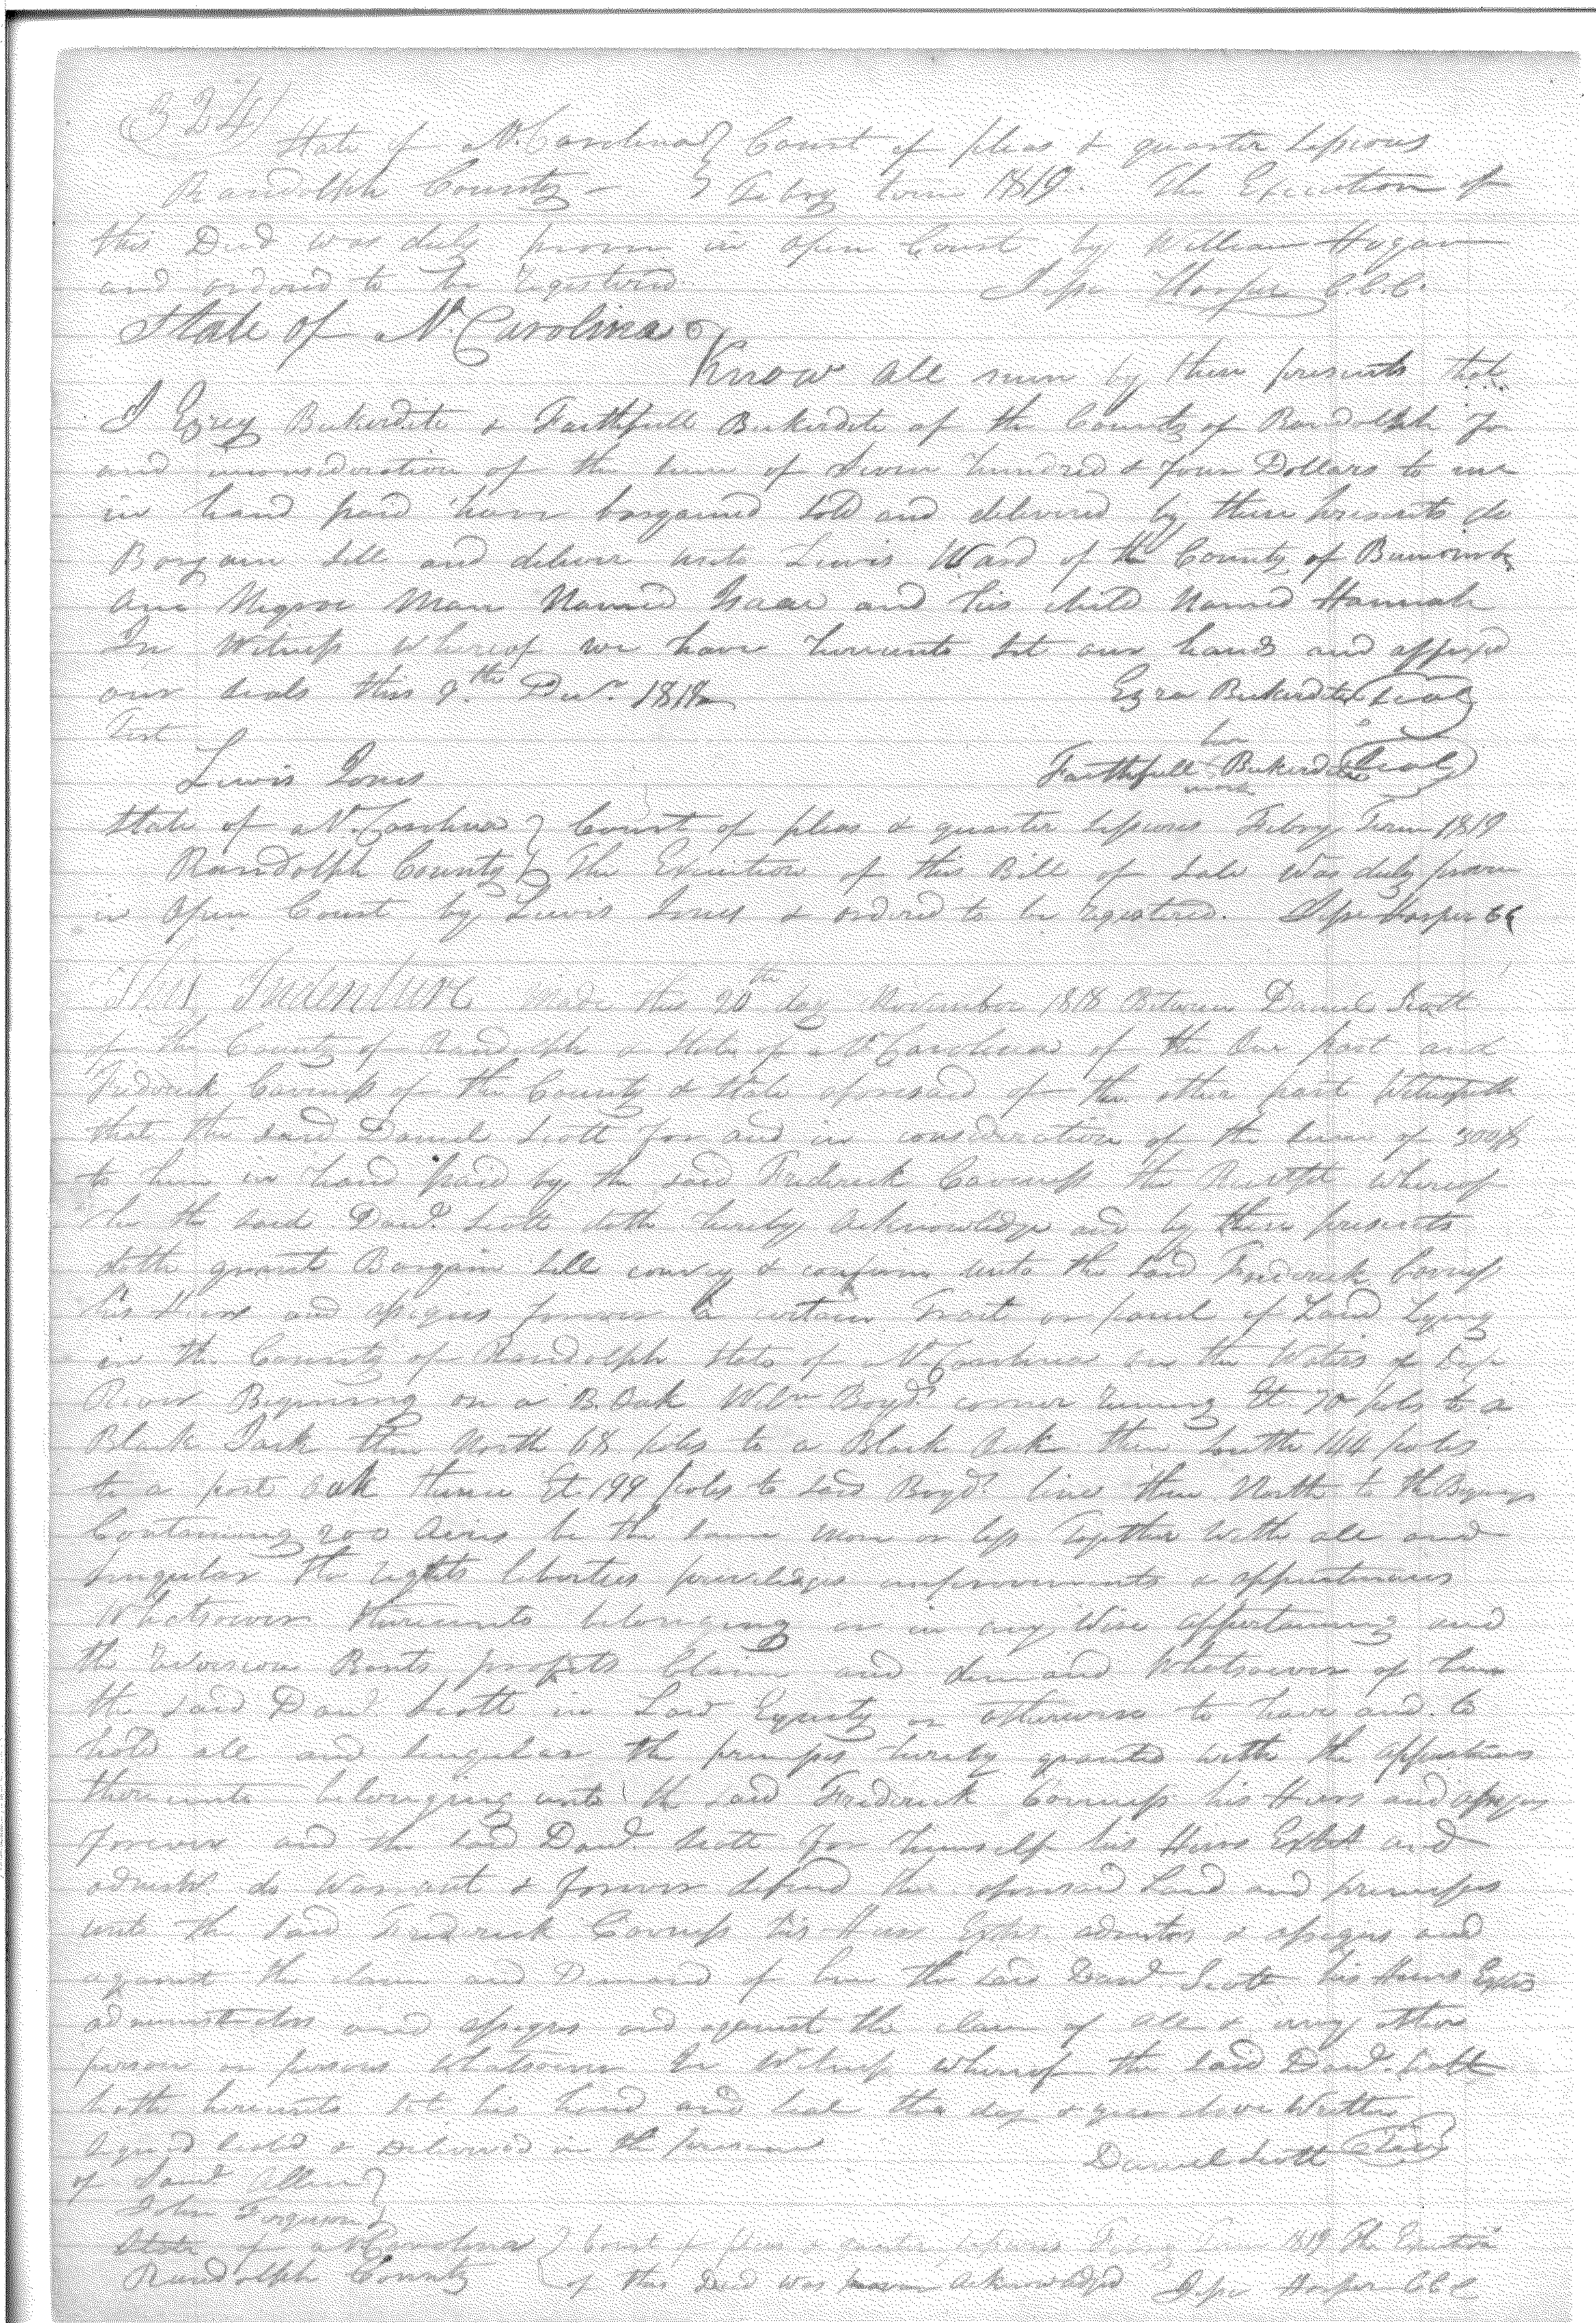 324
State of N. Carolina } Court of pleas & quarter Sessions
Randolph County - } Febry term 1819. The Execution of
this Deed was duly proven in open Court by William Hogan
and ordered to be Registered. Jesse Harper C.C.C.
State of N. Carolina
Know all men by these presents that
I Ezrey Bickerdite & Faithfull Bickerdite of the County of Randolph for
and inconsideration of the sum of Seven hundred & four Dollars to me
in hand paid have bargained sold and delivered by these presents do
Bargain Sell and deliver unto Lewis Ward of the County of Buncomb
One Negroe Man Named Isaac and his child Named Hannah
In Witness Whereof we have hereunto set our hands and affixed
our seals this 9.th Decr. 1818 Ezra Bickerdite (Seal)
Test her
Lewis Jones Faithfull Bickerdite (Seal)
mark
State of N. Carolina } Court of pleas & quarter sessions Febry Term 1819
Randolph County } The Execution of this Bill of Sale Was duly proven
in Open Court by Lewis Jones & ordered to be registered. Jesse Harper CC
This Indenture Made this 20th day November 1818 Between Daniel Scott
of the County of Randolph & State of N Carolina of the One part and
Fredrick Corness of the County & State aforesaid of the other part Witnesseth
that the said Daniel Scott for and in consideration of the sum of 300$
to him in hand paid by the said Frederick Corness the Receipt Whereof
he the said Danl. Scott doth hereby acknowledge and by these presents
doth grant Bargain Sell convey & confirm unto the said Frederick Corness
his Heirs and assigns forever a certain Tract or parcel of Land Lying
in the County of Randolph State of N Carolina on the Waters of Deep
River Begining on a B. Oak Wm. Boyds corner runing Et 70 poles to a
Black Jack then North 68 poles to a Black Oak then South 144 poles
to a post Oak thence Et. 199 poles to said Boyds line then North to the Begining
Containing 200 Acres be the same more or less Together With all and
singular the rights liberties priviledges improvements & appurtenances
Whatsoever thereunto belonging or in any Wise appertaining and
the reversion Rents profits Claim and demand Whatsoever of him
the said Danl Scott in Law Equity or otherwise to have and to
hold all and singular the premises hereby granted with the appurtenances
thereunto belonging unto the said Frederick Corness his Heirs and assigns
forever and the said Danl. Scott for himself his Heirs Extrs and
admstrs. do Warrant & forever defend the aforesaid Land and premises
unto the said Frederick Corness his Heirs Extrs. admtrs & assigns and
against the claim and Demand of him the said Danl Scott his Heirs Extrs
administrators and assigns and against the claim of all & every other
person or persons Whatsoever In Witness Whereof the said Danl. Scott
hath hereunto set his hand and seal the day & year above Written
Signed Sealed & Delivered in the presence Daniel Scott (Seal)
of Saml Allen }
John Ferguson }
State of N Carolina } Court of pleas & quarter sessions Febry Term 1819 The Execution
Randolph County } of this Deed was acknowledged Jesse Harper CCC